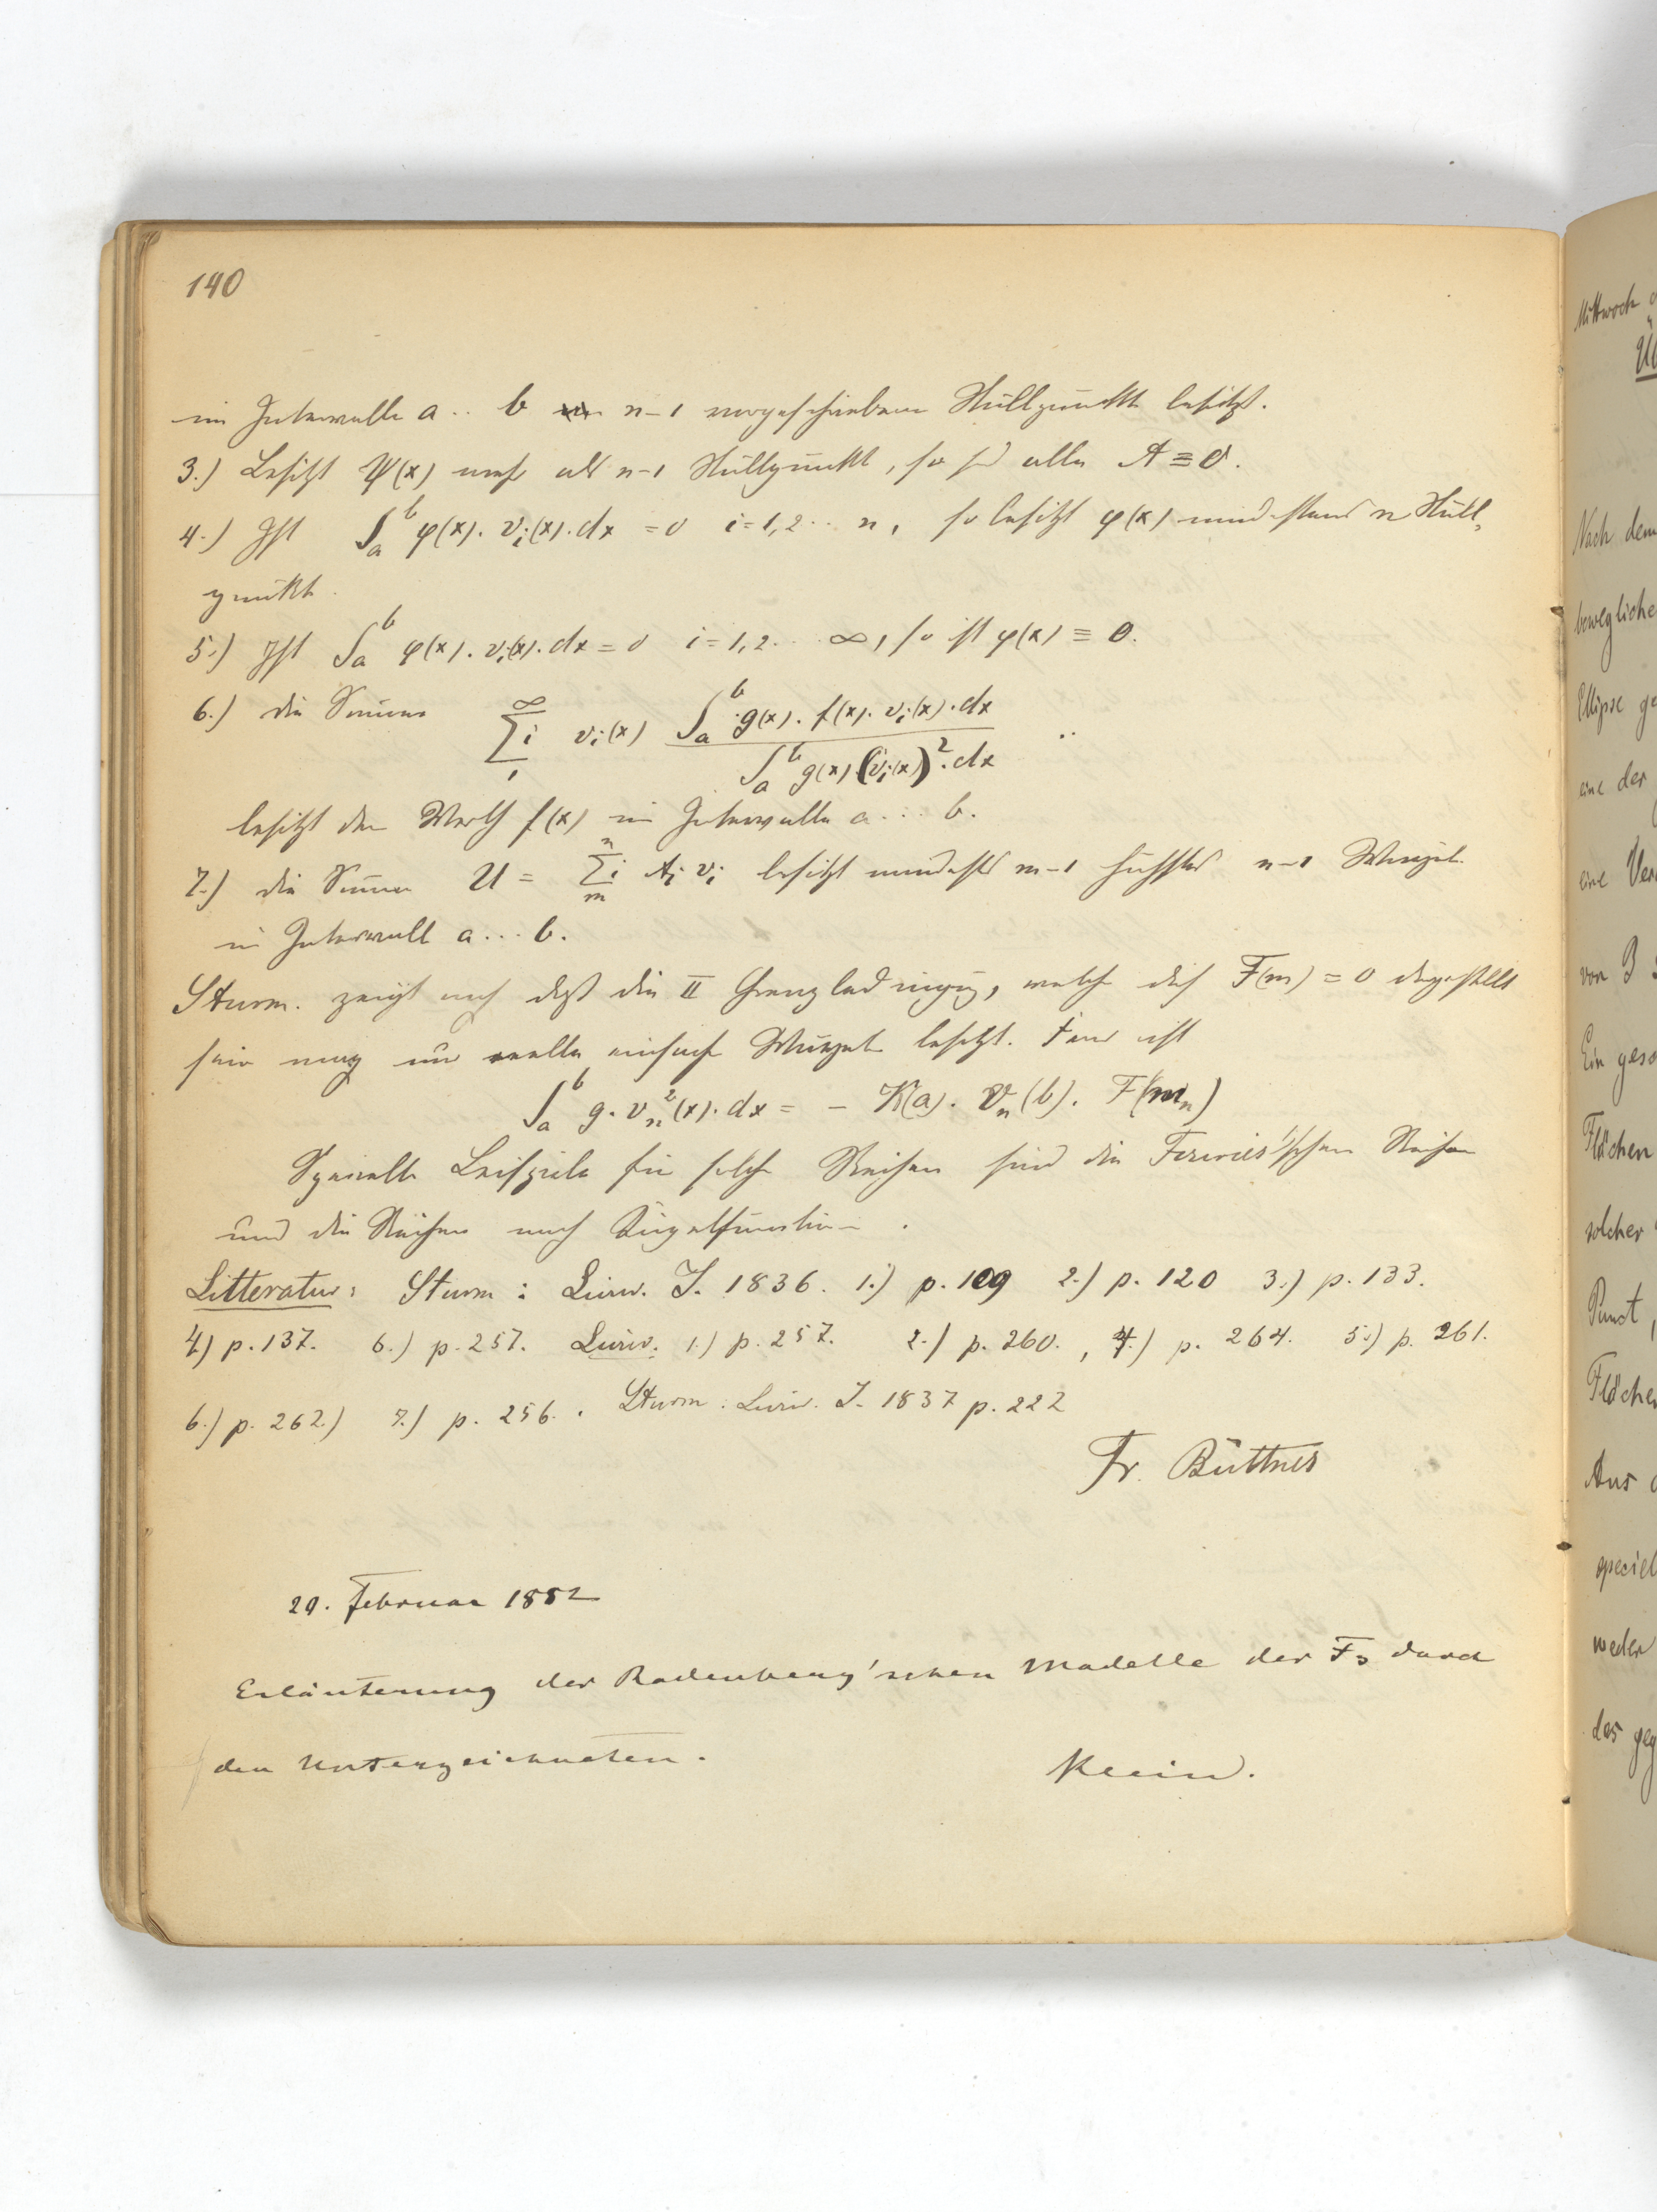 140
im Intervalle a .. b n–1 vorgeschriebene Nullpunkte besitzt.
3.) Besitzt ψ(x) mehr als n–1 Nullpunkte, so sd alle A ≡ 0.
4.) Ist ∫_a^b φ(x). v_i(x). dx = 0 i = 1, 2 .. n, so besitzt φ(x) mindestens n Null-
punkte.
5.) Ist ∫_a^b φ(x). v_i(x). dx = 0 i = 1, 2 .. .. ∞, so ist φ(x) ≡ 0.
6.) die Summe ∑_1^∞ i v_i(x) ∫_a^b g(x). f(x). v_i(x). dx / ∫_a^b g(x) (v_i(x))^2. dx ..
besitzt den Werth f(x) im Intervalle a ... b.
7.) die Summe U = ∑_m^n i A_i v_i besitzt mindestens m–1 höchstens n–1 Wurzeln
im Intervall a ... b.
Sturm. zeigt noch daß die II Grenzbedingung, welche dch F(m) = 0 dargestellt
sein mag nur reelle einfache Wurzeln besitzt. Ferner ist
∫_a^b g. v_n^2(x). dx = – K(a). V_n(b). F(m_n)
Specielle Beispiele für solche Reihen sind die Fourier'schen Reihen
und die Reihen nach Kugelfunctionen.
Litteratur: Sturm: Liouv. J. 1836. 1.) p. 109 2.) p. 120 3.) p. 133.
4) p. 137. 6.) p. 257. Liouv. 1.) p. 257. 2.) p. 260., 4.) p. 264. 5.) p. 261.
6.) p. 262.) 7.) p. 256. Sturm: Liouv. J. 1837 p. 222
Fr. Büttner
20. Februar 1882
Erläuterung der Rodenberg'schen Modelle der F3 durch
den Unterzeichneten. Klein.
Mittwoch
Nach dem
bewegliche
Ellipse
eine der
eine
von
Ein
Flächen
solcher
Punct,
Fläche
Aus
speciel
weder
das